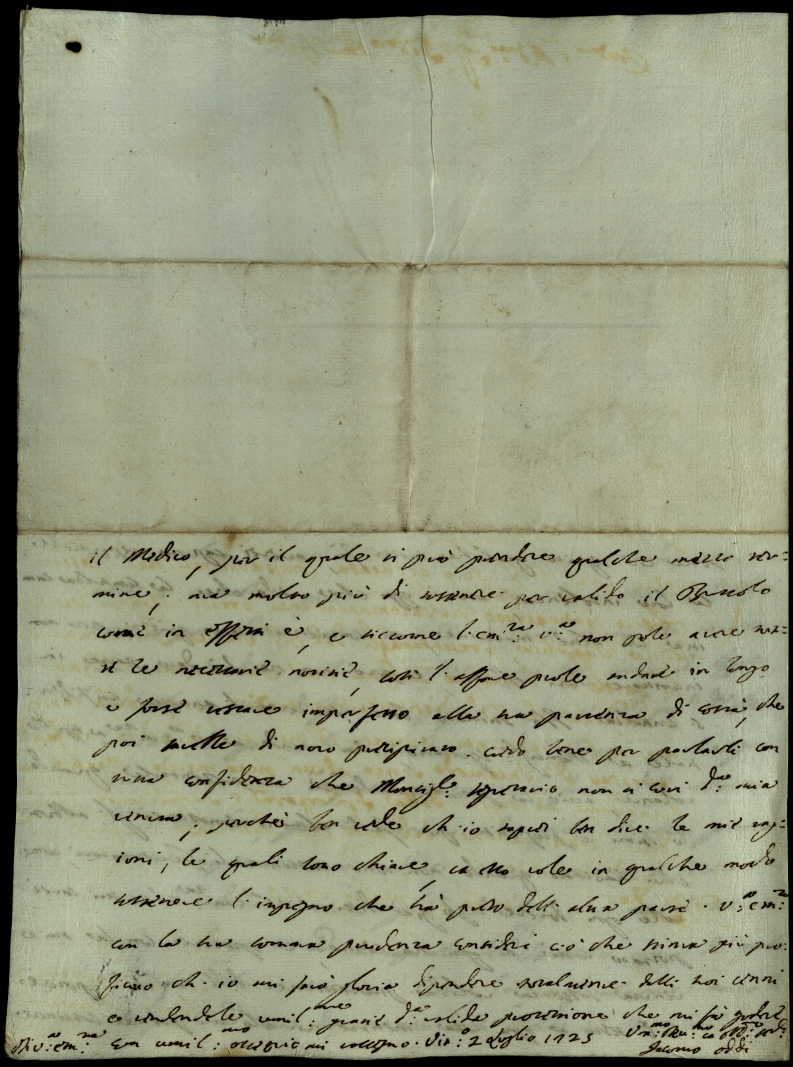 il Medico, per il quale si può prendere qualche mezzo ter=
mine; ma molto più di sostenere per valido il Bussolo
come in effetti è, e siccome l'em:za v:a non pole avere tut=
te le necessarie notitie, così l'affare puole andare in longo
e forse restare imperfetto alla sua partenza di costà, che
poi sarebbe di novo pregiudicato. credo bene per parlarli con
tutta confidenza che Monsig:re non si curi d:a mia
venuta, perché ben vede ch'io saprei ben dire le mie rag=
ioni, le quali sono chiare, ed esso vole in qualche modo
sostenere l'impegno che hà preso dell'altra parte. V:a em:za
con la sua somma prudenza consideri ciò che stima più pro=
ficuo ch'io mi farò gloria dipendere totalmente dalli suoi cenni
e rendendole umil:me grazie d:a valida protezione che mi fà godere
Di v:a em:za con umil:mo ossequio mi rassegno. Vit:o 2 Luglio 1725
Giacomo Oddi